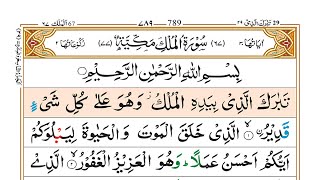 تَبٰرَكَ الَّذِىْ ٢٩ ٧٨٩ 789 الملك ٦٧
اٰيَاتُهَا ٣٠ (٦٧) سُوْرَةُ الْمُلْكِ مَكِّيَّةٌ (٧٧) رُكُوْعَاتُهَا ٢
بِسْمِ اللّٰهِ الرَّحْمٰنِ الرَّحِيْمِ
تَبٰرَكَ الَّذِىْ بِيَدِهِ الْمُلْكُ وَهُوَ عَلٰى كُلِّ شَىْءٍ
قَدِيْرُۨ ۙ الَّذِىْ خَلَقَ الْمَوْتَ وَالْحَيٰوةَ لِيَبْلُوَكُمْ
اَيُّكُمْ اَحْسَنُ عَمَلًا ؕ وَهُوَ الْعَزِيْزُ الْغَفُوْرُ ۙ الَّذِىْ